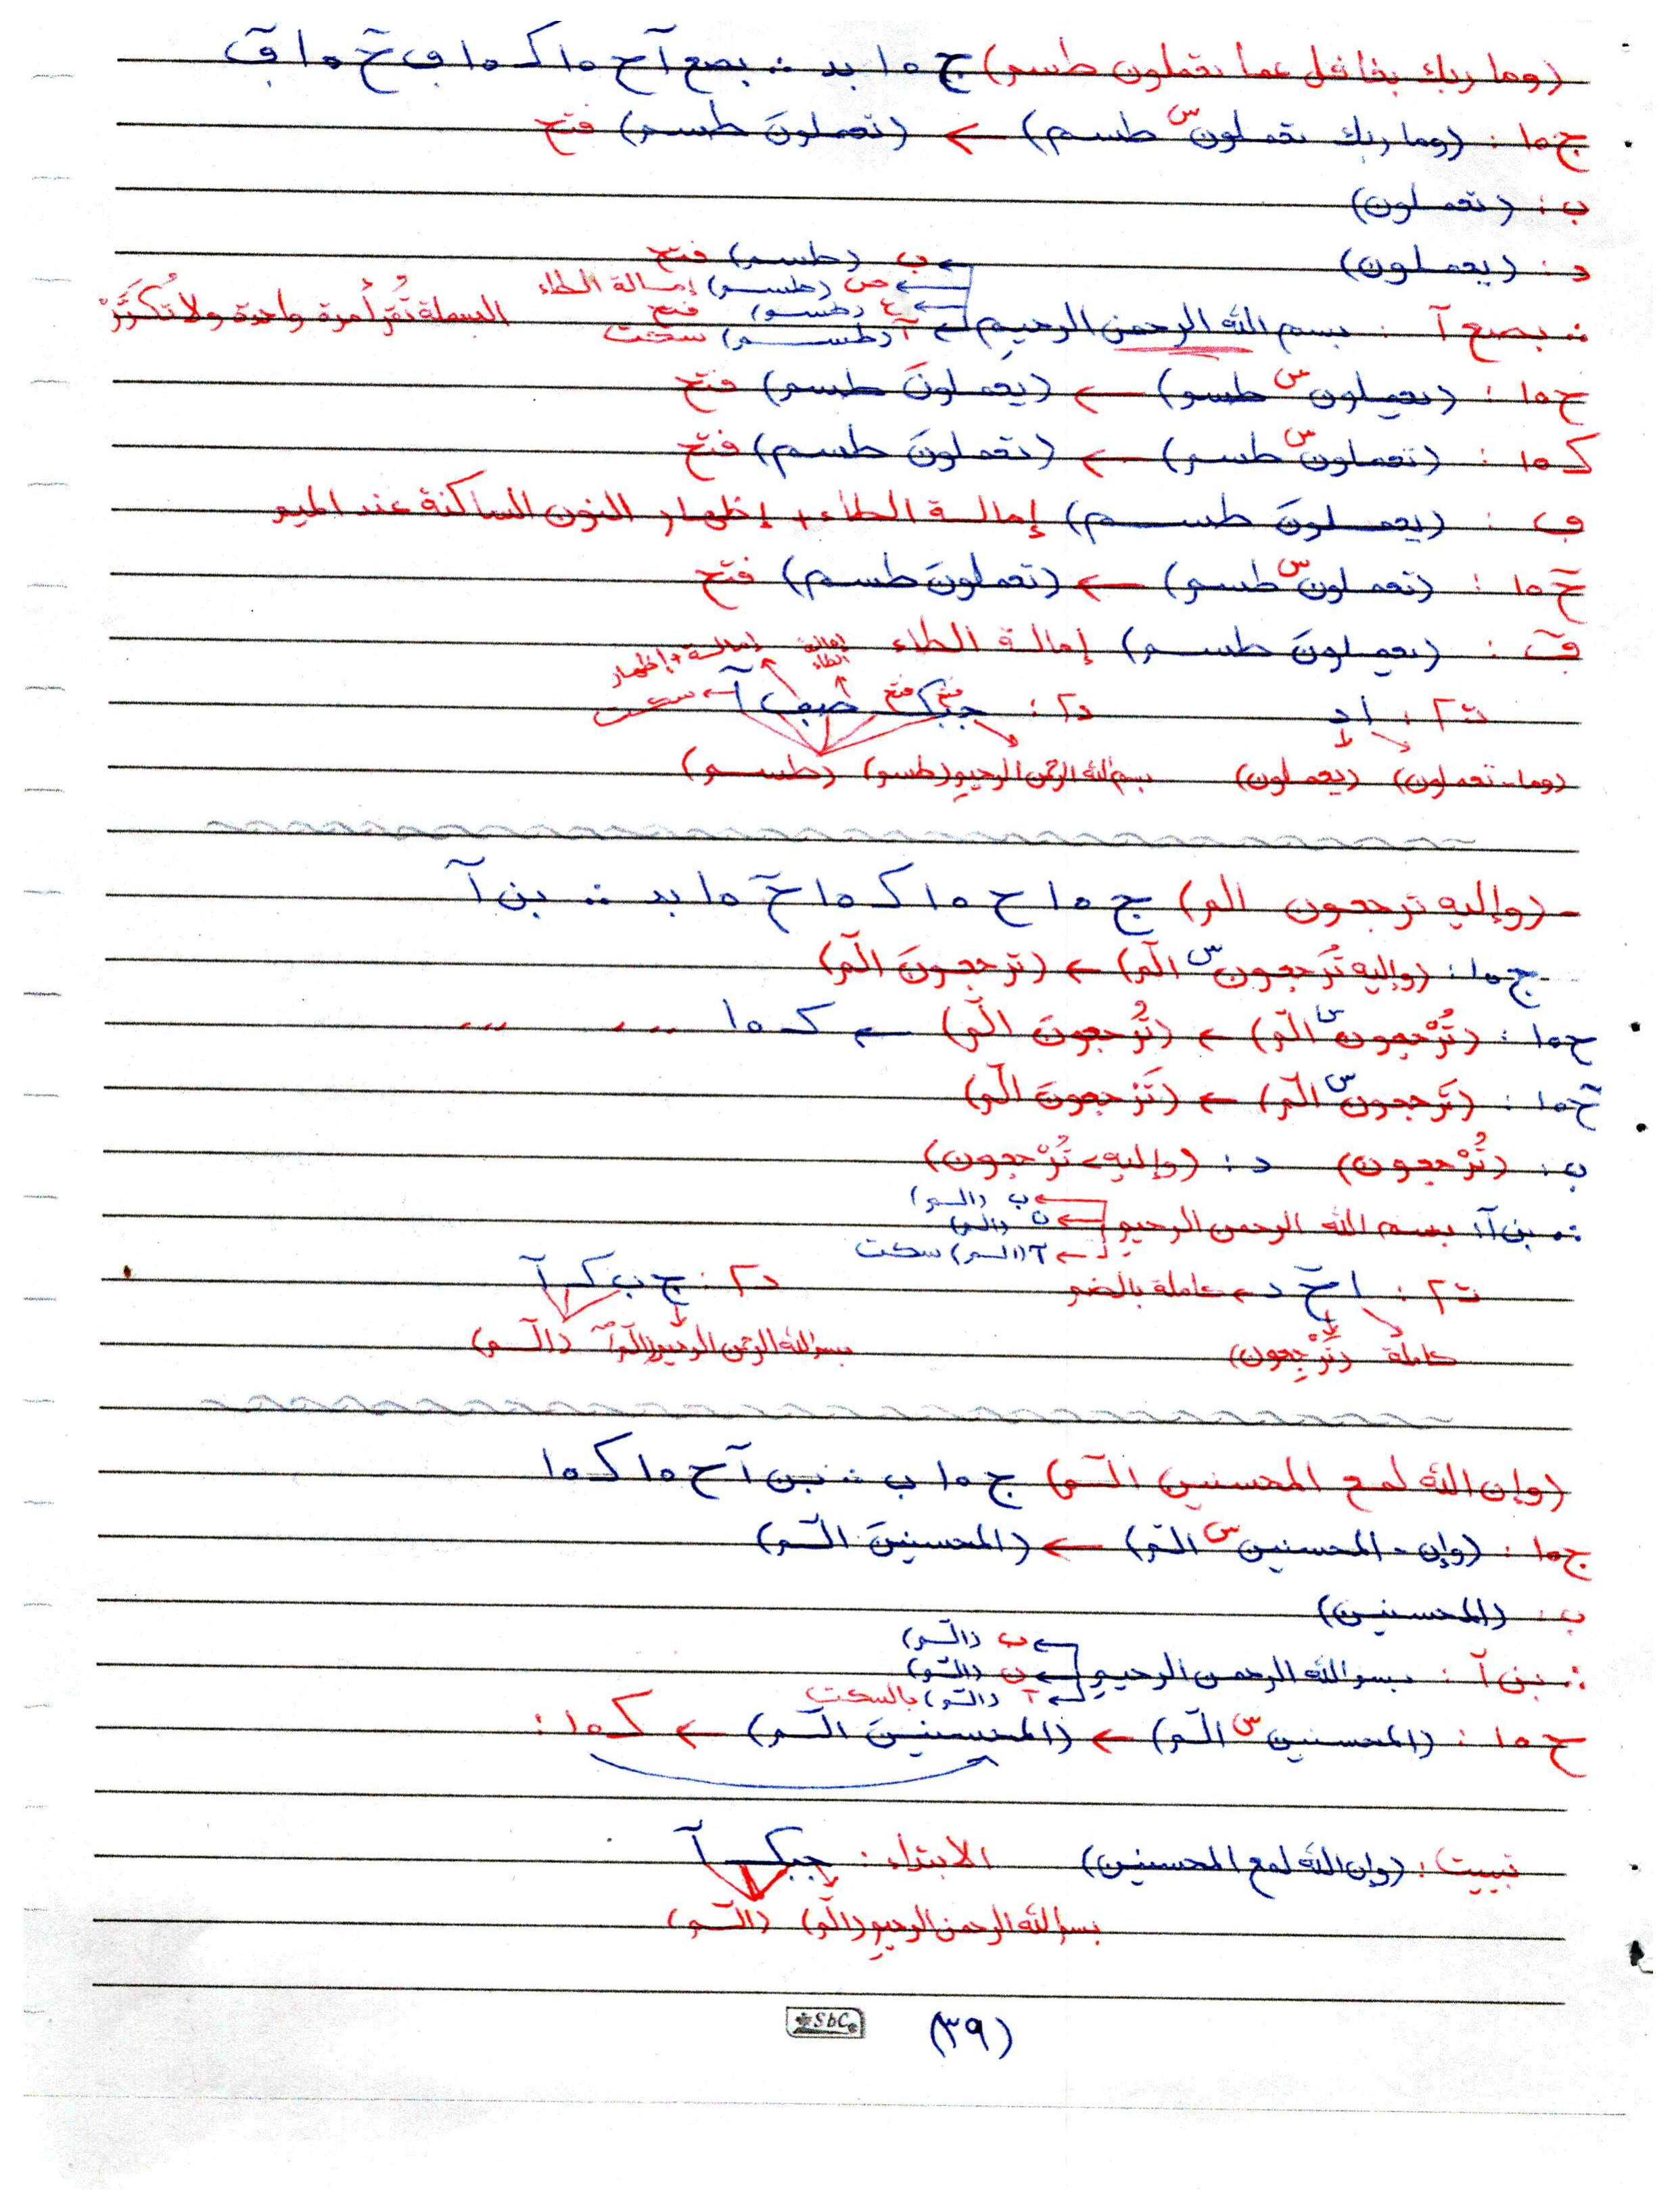 (وما ربك بغافل عما تعملون طسم) ج ١٥ بد ∴ بصع آ ح ١٥ ك ١٥ ف خ ١٥ ق
ج ١٥ : (وما ربك تعملون س طسم) ← (تعملونَ طسم) فتح
ب : (تعملون)
د : (يعملون)
← ب (طسم) فتح
← ص (طسم) إمالة الطاء
← ع (طسم) فتح
∴ بصع آ : بسم الله الرحمن الرحيم ← آ (طسم) سكت البسملة تُقرأ مرة واحدة ولا تُكَرَّرْ
ح ١٥ : (يعملون س طسم) ← (يعملونَ طسم) فتح
ك ١٥ : (تعملون س طسم) ← (تعملونَ طسم) فتح
ف : (يعملونَ طسم) إمالة الطاء + إظهار النون الساكنة عند الميم
خ ١٥ : (تعملون س طسم) ← (تعملونَ طسم) فتح
ق : (يعملونَ طسم) إمالة الطاء
إمالة + إظهار إمالة الطاء
ت ٢ : اد د ٢ : جبك صف آ ← سكت
(وما - تعملون) (يعملون) بسم الله الرحمن الرحيم (طسم) (طسم)
- (وإليه ترجعون الم) ج ١٥ ح ١٥ ك ١٥ خ ١٥ بد ∴ بن آ
ج ١٥ : (وإليه تُرجعون س الم) ← (ترجعونَ الم)
ح ١٥ : (تُرْجعون س الم) ← (تُرْجعونَ الم) ← ك ١٥ ,,, ,,,
خ ١٥ : (تَرجعون س الم) ← (تَرْجعونَ الم)
ب : (تُرْجعون) د : (وإليهِ تُرْجعون)
← ب (الم)
← ن (الم)
∴ بن آ : بسم الله الرحمن الرحيم ← آ (الم) سكت
ت ٢ : ا خ د ← كاملة بالضم د ٢ : ج ب ك آ
كاملة (تَرْجِعون) بسم الله الرحمن الرحيم (الم) (الم)
(وإن الله لمع المحسنين الم) ج ١٥ ب ∴ بن آ ح ١٥ ك ١٥
ج ١٥ : (وإن - المحسنين س الم) ← (المحسنينَ الم)
ب : (المحسنين)
← ب (الم)
← ن (الم)
∴ بن آ : بسم الله الرحمن الرحيم ← آ (الم) بالسكت
ح ١٥ : (المحسنين س الم) ← (المحسنينَ الم) ← ك ١٥ :
تبييت : (وإن الله لمع المحسنين) الابتداء : جبك آ
بسم الله الرحمن الرحيم (الم) (الم)
(٣٩)
SbC